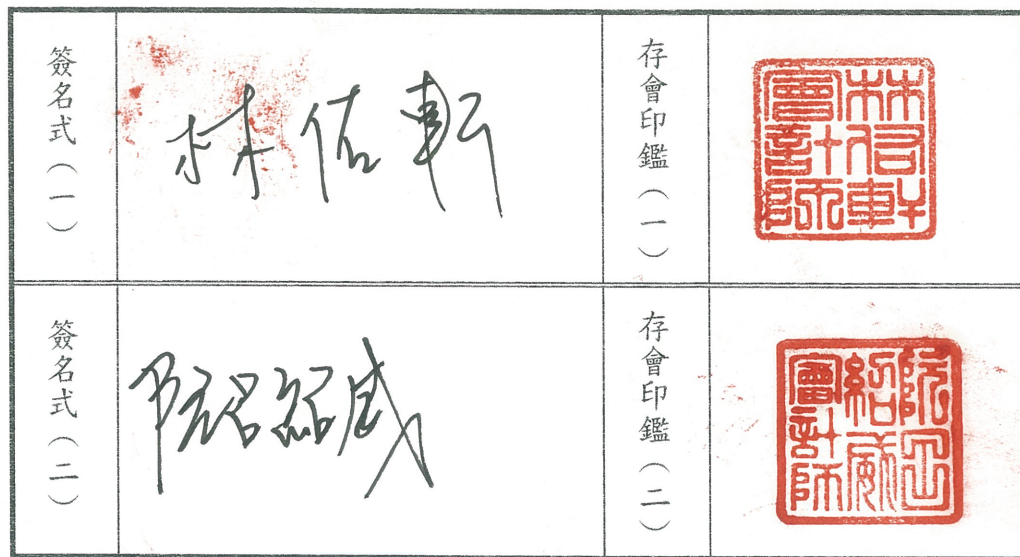 簽名式（一）
林佑軒
存會印鑑（一）
林佑軒
會計師
簽名式（二）
阮呂紹威
存會印鑑（二）
阮呂
紹威
會計師